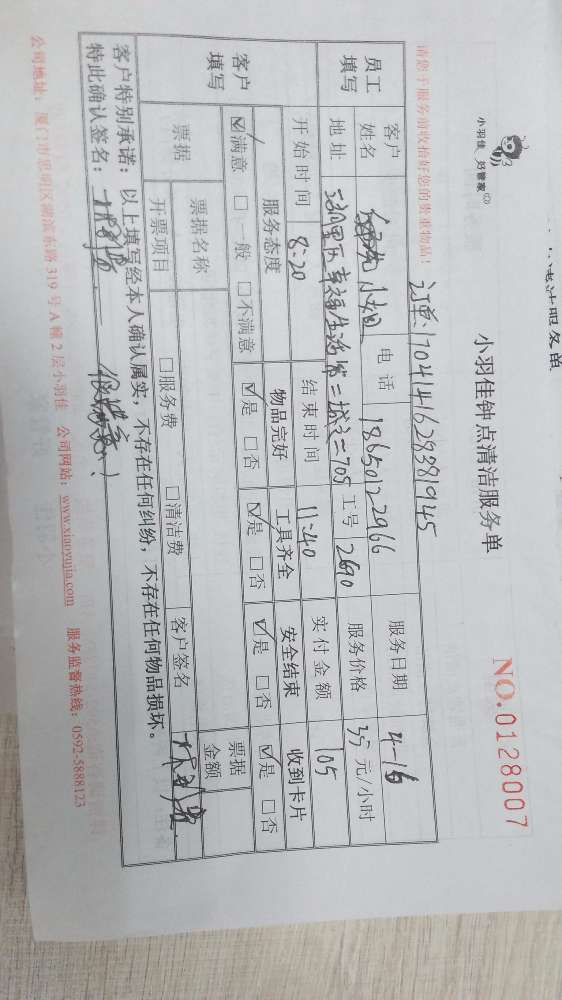 洁服务单
小羽佳 好管家
小羽佳钟点清洁服务单
NO.0128007
请您于服务前收拾好您的贵重物品!
订单:17041416283819145
员工填写 客户姓名 小姐 电话 18650122966 服务日期 4-16
地址 二 705 工号 2690 服务价格 35 元/小时
开始时间 8:20 结束时间 11:40 实付金额 105
客户填写 服务态度 物品完好 工具齐全 安全结束 收到卡片
☑满意 □一般 □不满意 ☑是 □否 ☑是 □否 ☑是 □否 ☑是 □否
票据 票据名称 客户签名 票据金额
开票项目 □服务费 □清洁费
客户特别承诺:以上填写经本人确认属实,不存在任何纠纷,不存在任何物品损坏。
特此确认签名: 很满意!
公司地址:厦门市思明区湖滨东路 319 号 A 幢 2 层小羽佳 公司网站:www.xiaoyujia.com 服务监督热线:0592-5888123